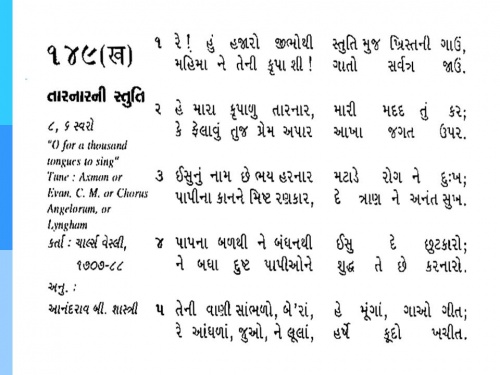 ૧૪૯(ખ)
તારનારની સ્તુતિ
૮, ૬ સ્વરો
"O for a thousand
tongues to sing"
Tune : Axmon or
Evan, C. M. or Chorus
Angelorum, or
Lyngham
કર્તા : ચાર્લ્સ વેસ્લી,
૧૭૦૭-૮૮
અનુ. :
આનંદરાવ બી. શાસ્ત્રી
૧ રે! હું હજારો જીભોથી સ્તુતિ મુજ ખ્રિસ્તની ગાઉં,
મહિમા ને તેની કૃપા શી! ગાતો સર્વત્ર જાઉં.
૨ હે મારા કૃપાળુ તારનાર, મારી મદદ તું કર;
કે ફેલાવું તુજ પ્રેમ અપાર આખા જગત ઉપર.
૩ ઈસુનું નામ છે ભય હરનાર મટાડે રોગ ને દુઃખ;
પાપીના કાનને મિષ્ટ રણકાર, દે ત્રાણ ને અનંત સુખ.
૪ પાપના બળથી ને બંધનથી ઈસુ દે છુટકારો;
ને બધા દુષ્ટ પાપીઓને શુદ્ધ તે છે કરનારો.
૫ તેની વાણી સાંભળો, બે'રાં, હે મૂંગાં, ગાઓ ગીત;
રે આંધળાં, જુઓ, ને લૂલાં, હર્ષે કૂદો ખચીત.